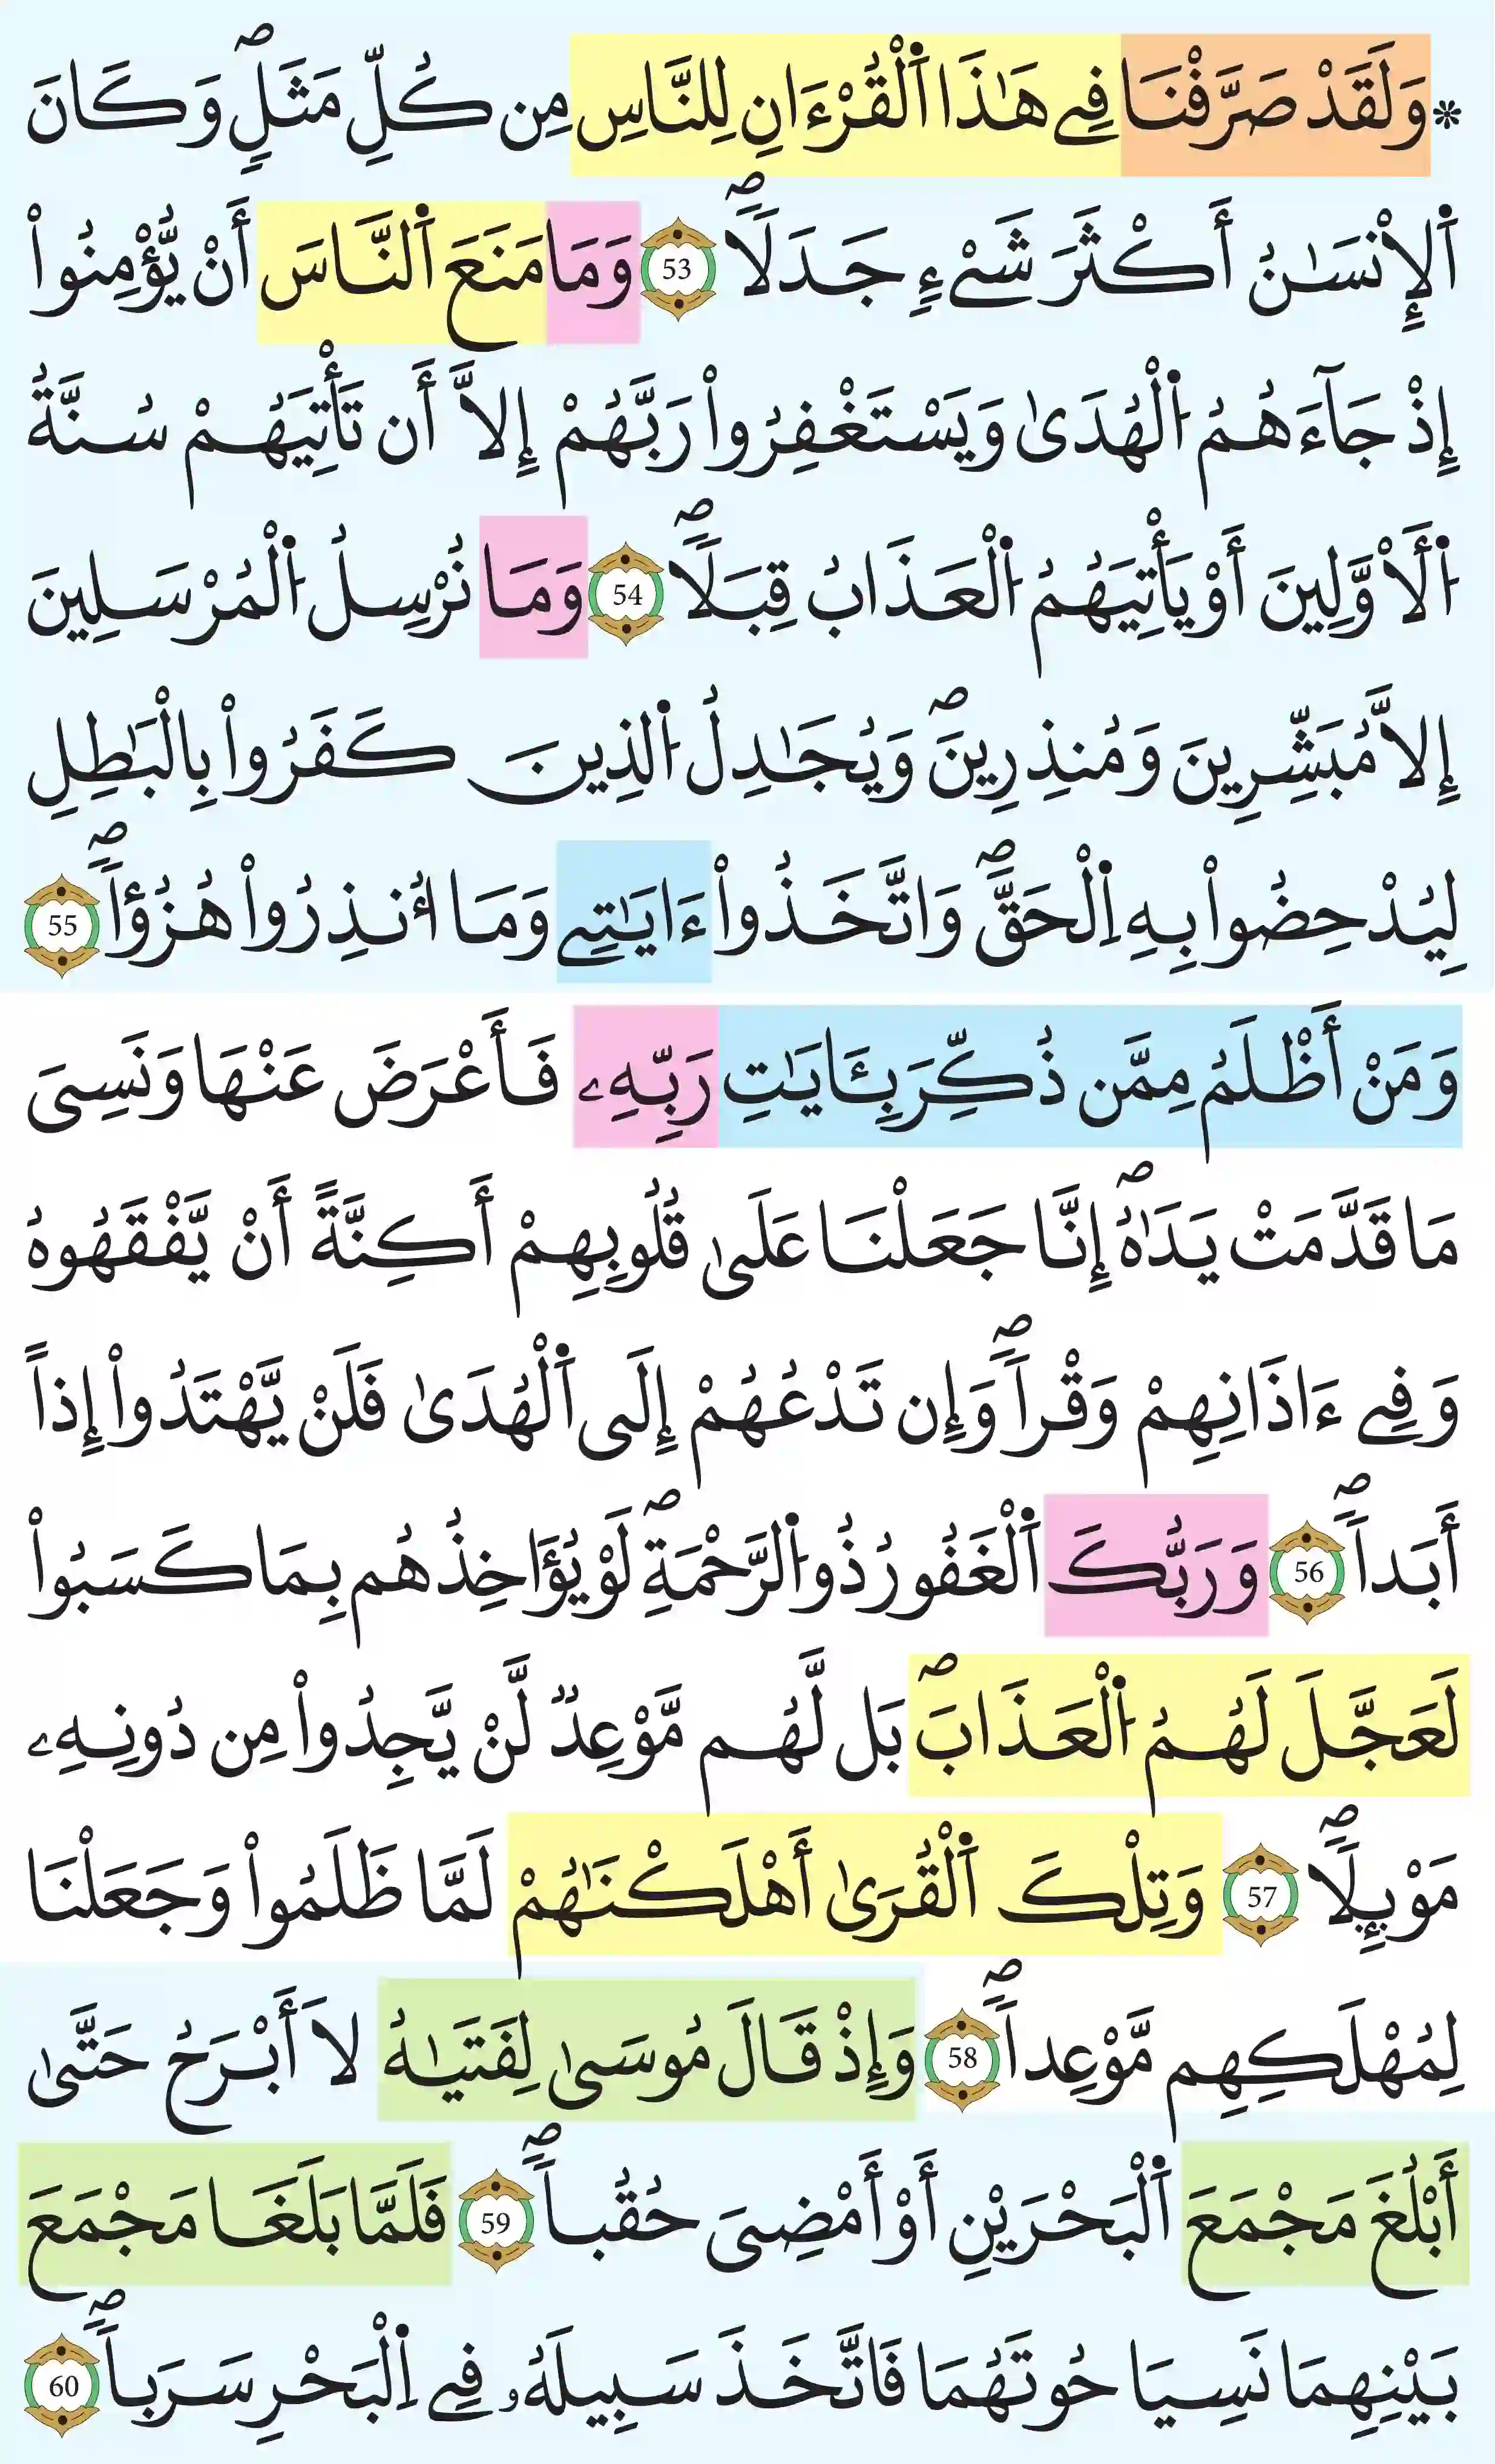 * وَلَقَدْ صَرَّفْنَا فِے هَٰذَا اَ۬لْقُرْءَانِ لِلنَّاسِ مِن كُلِّ مَثَلٖۖ وَكَانَ
اَ۬لِانْسَٰنُ أَكْثَرَ شَےْءٖ جَدَلاٗۖ 53 وَمَا مَنَعَ اَ۬لنَّاسَ أَنْ يُّؤْمِنُواْ
إِذْ جَآءَهُمُ اُ۬لْهُدَىٰ وَيَسْتَغْفِرُواْ رَبَّهُمْ إِلَّا أَن تَأْتِيَهُمْ سُنَّةُ
اُ۬لَاوَّلِينَ أَوْ يَأْتِيَهُمُ اُ۬لْعَذَابُ قِبَلاٗۖ 54 وَمَا نُرْسِلُ اُ۬لْمُرْسَلِينَ
إِلَّا مُبَشِّرِينَ وَمُنذِرِينَۖ وَيُجَٰدِلُ اُ۬لذِينَ كَفَرُواْ بِالْبَٰطِلِ
لِيُدْحِضُواْ بِهِ اِ۬لْحَقَّۖ وَاتَّخَذُواْ ءَايَٰتِے وَمَا أُنذِرُواْ هُزُؤاٗۖ 55
وَمَنْ أَظْلَمُ مِمَّن ذُكِّرَ بِـَٔايَٰتِ رَبِّهِۦ فَأَعْرَضَ عَنْهَا وَنَسِىَ
مَا قَدَّمَتْ يَدَٰهُۖ إِنَّا جَعَلْنَا عَلَىٰ قُلُوبِهِمْ أَكِنَّةً أَنْ يَّفْقَهُوهُ
وَفِے ءَاذَانِهِمْ وَقْراٗۖ وَإِن تَدْعُهُمْ إِلَى اَ۬لْهُدَىٰ فَلَنْ يَّهْتَدُواْ إِذاً
أَبَداٗۖ 56 وَرَبُّكَ اَ۬لْغَفُورُ ذُو اُ۬لرَّحْمَةِۖ لَوْ يُؤَاخِذُهُم بِمَا كَسَبُواْ
لَعَجَّلَ لَهُمُ اُ۬لْعَذَابَۖ بَل لَّهُم مَّوْعِدٞ لَّنْ يَّجِدُواْ مِن دُونِهِۦ
مَوْئِلاٗۖ 57 وَتِلْكَ اَ۬لْقُرَىٰ أَهْلَكْنَٰهُمْ لَمَّا ظَلَمُواْ وَجَعَلْنَا
لِمُهْلَكِهِم مَّوْعِداٗۖ 58 وَإِذْ قَالَ مُوسَىٰ لِفَتَيٰهُ لَا أَبْرَحُ حَتَّىٰ
أَبْلُغَ مَجْمَعَ اَ۬لْبَحْرَيْنِ أَوْ أَمْضِىَ حُقُباٗۖ 59 فَلَمَّا بَلَغَا مَجْمَعَ
بَيْنِهِمَا نَسِيَا حُوتَهُمَا فَاتَّخَذَ سَبِيلَهُۥ فِے اِ۬لْبَحْرِ سَرَباٗۖ 60